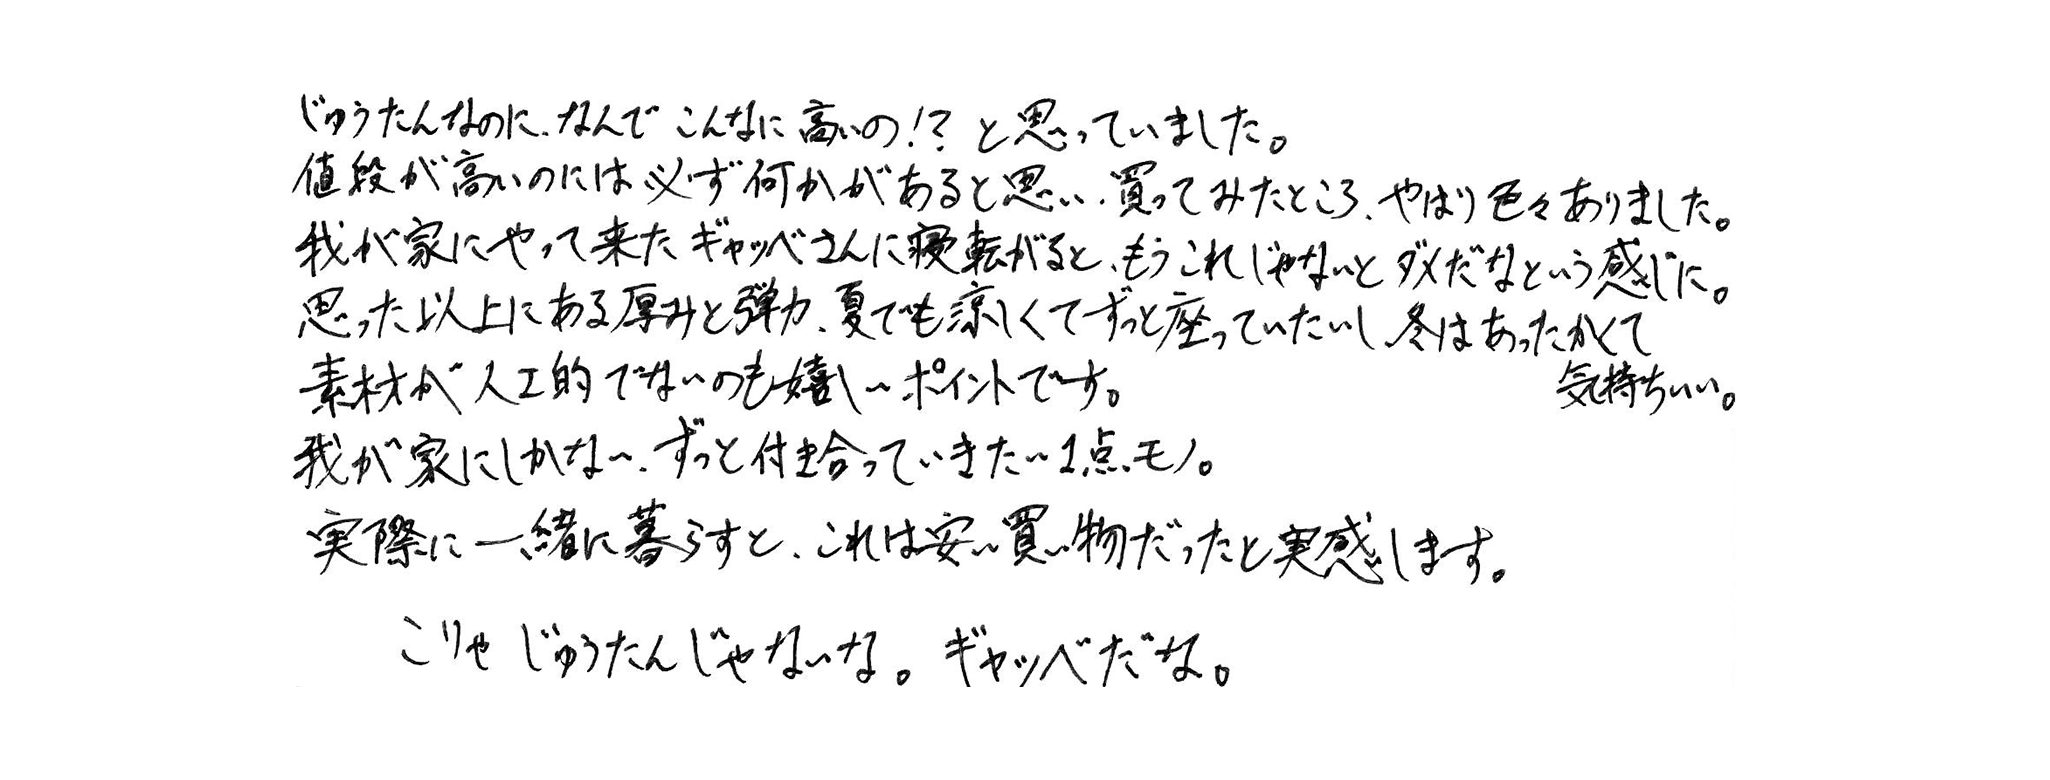 じゅうたんなのに、なんで こんなに 高いの!? と思っていました。
値段が高いのには必ず何かがあると思い、買ってみたところ、やはり色々ありました。
我が家にやって来たギャッベさんに寝転がると、もうこれじゃないとダメだなという感じに。
思った以上にある厚みと弾力、夏でも涼しくてずっと座っていたいし、冬はあったかくて
気持ちいい。
素材が人工的でないのも嬉しいポイントです。
我が家にしかない、ずっと付き合っていきたい1点モノ。
実際に一緒に暮らすと、これは安い買い物だったと実感します。
こりゃ じゅうたんじゃないな。ギャッベだな。